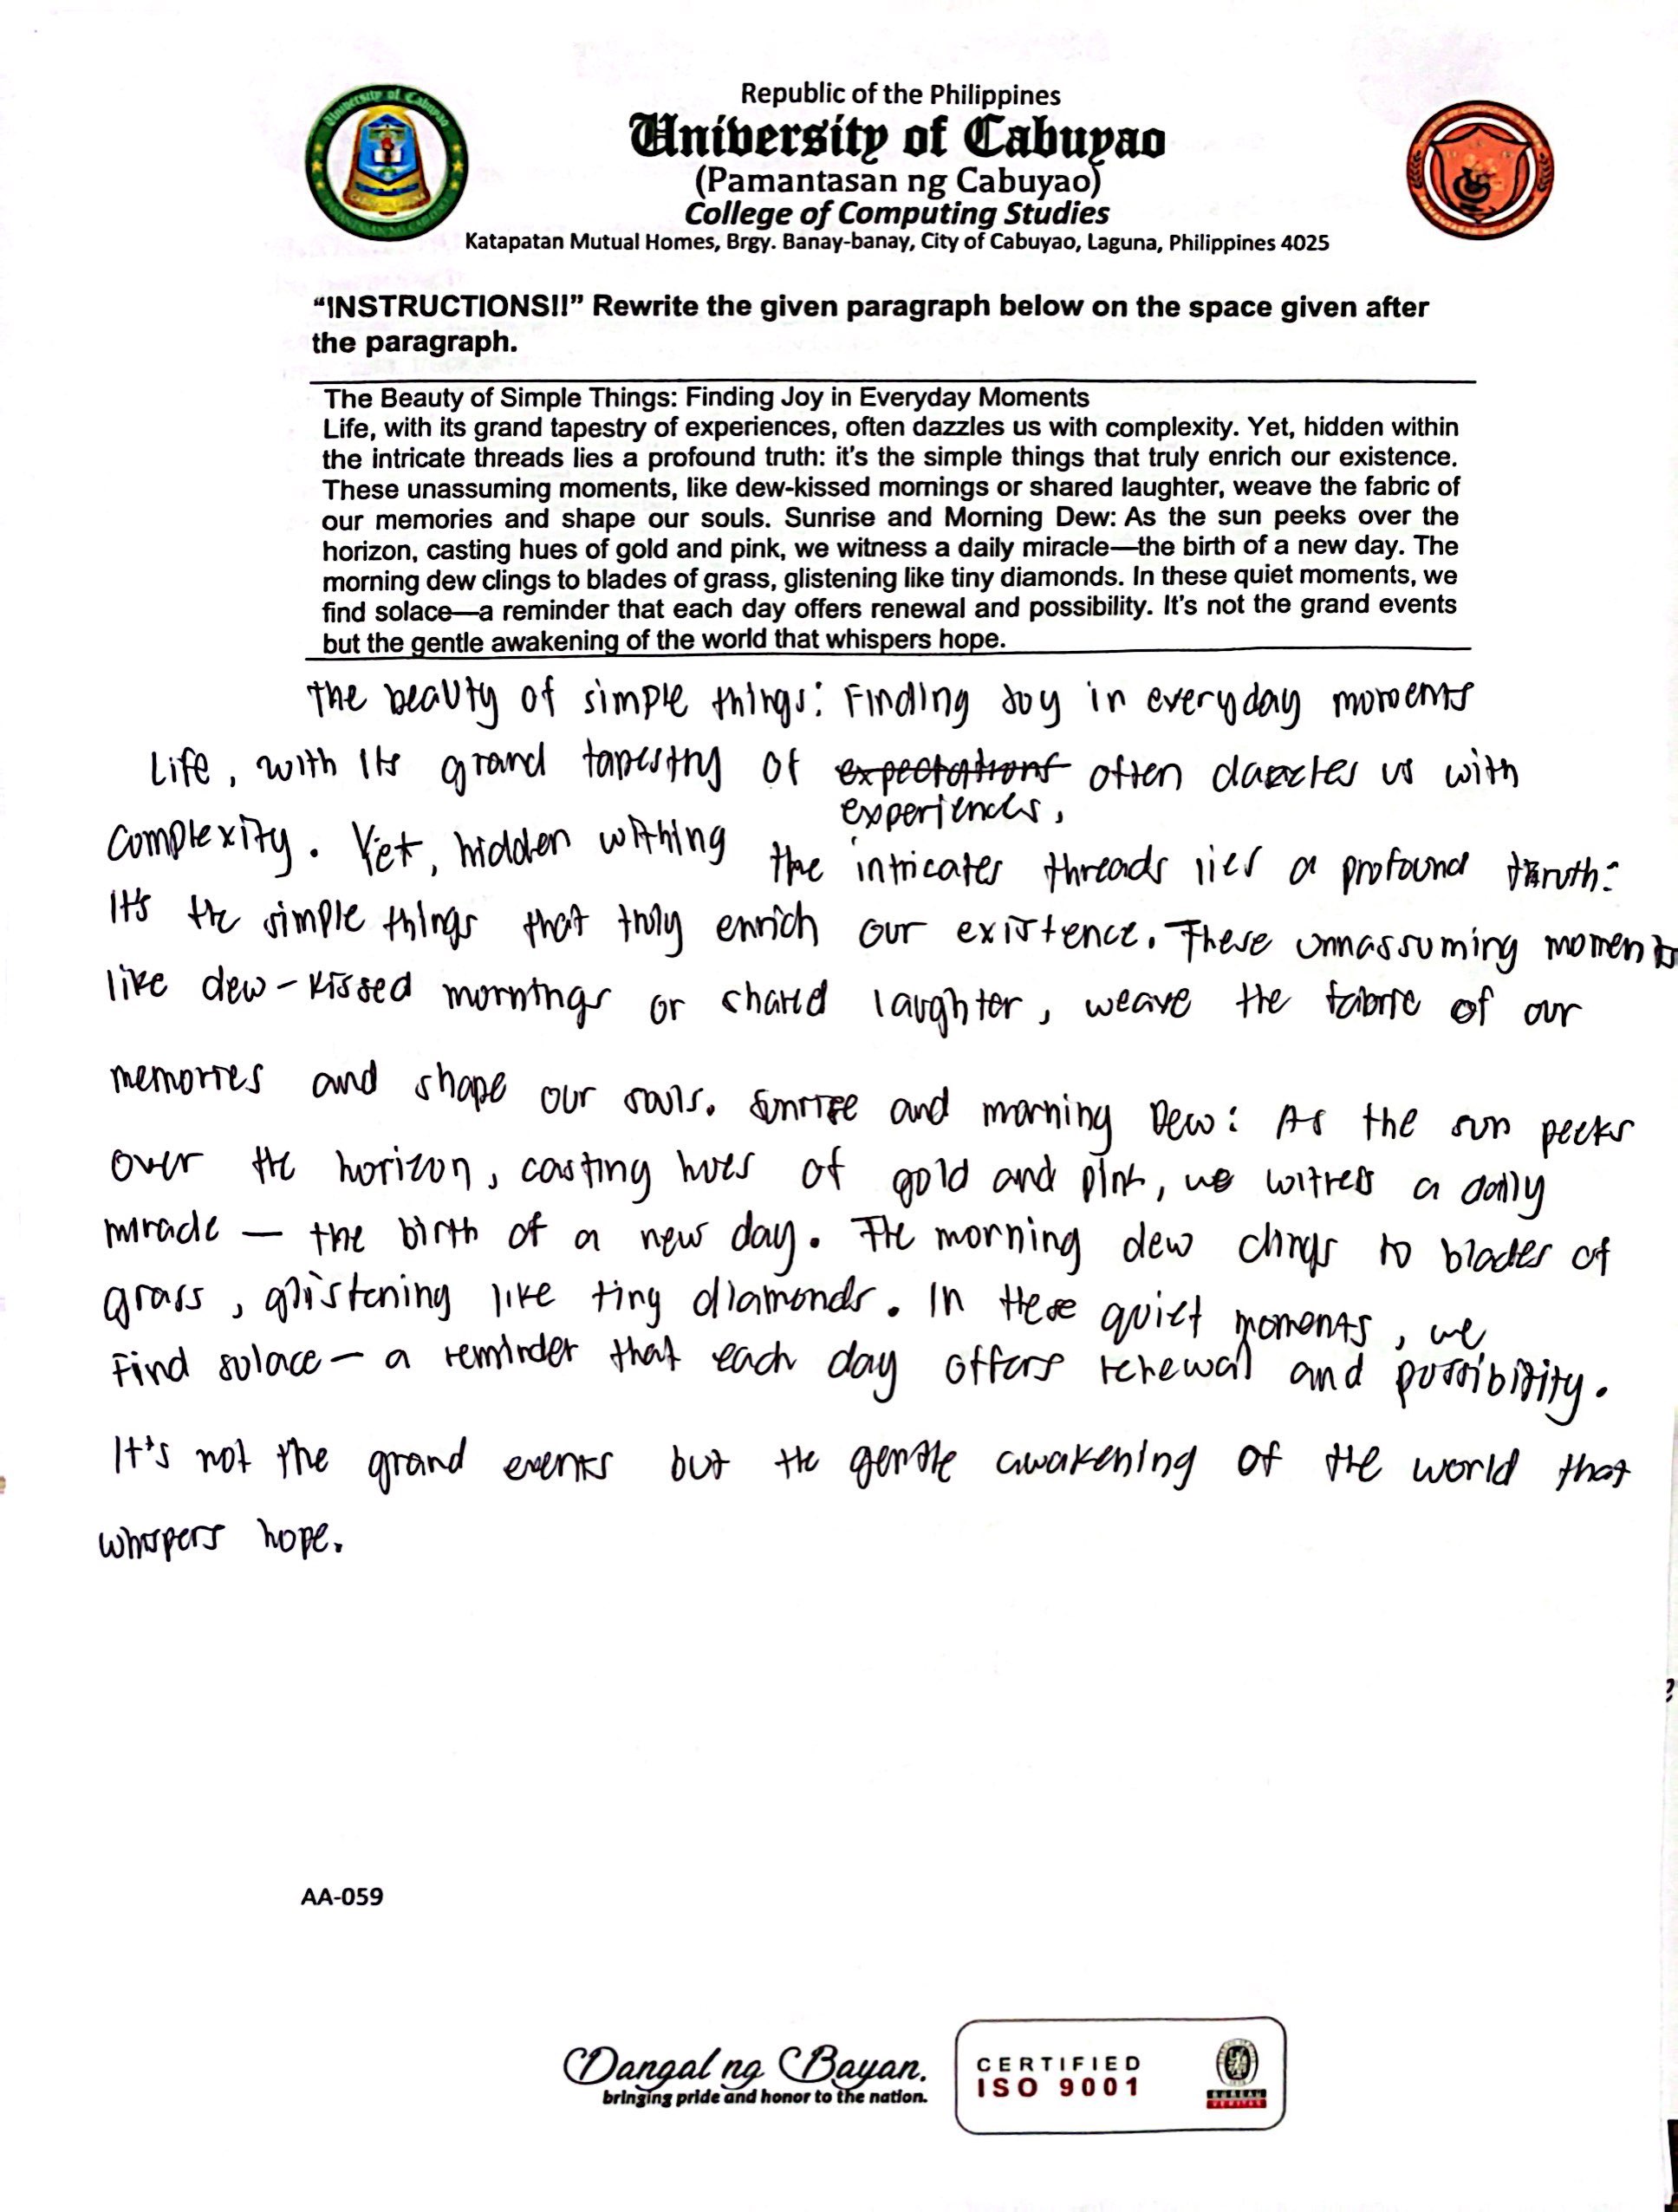 Republic of the Philippines
University of Cabuyao
(Pamantasan ng Cabuyao)
College of Computing Studies
Katapatan Mutual Homes, Brgy. Banay-banay, City of Cabuyao, Laguna, Philippines 4025
“INSTRUCTIONS!!” Rewrite the given paragraph below on the space given after
the paragraph.
The Beauty of Simple Things: Finding Joy in Everyday Moments
Life, with its grand tapestry of experiences, often dazzles us with complexity. Yet, hidden within
the intricate threads lies a profound truth: it's the simple things that truly enrich our existence.
These unassuming moments, like dew-kissed mornings or shared laughter, weave the fabric of
our memories and shape our souls. Sunrise and Morning Dew: As the sun peeks over the
horizon, casting hues of gold and pink, we witness a daily miracle—the birth of a new day. The
morning dew clings to blades of grass, glistening like tiny diamonds. In these quiet moments, we
find solace—a reminder that each day offers renewal and possibility. It's not the grand events
but the gentle awakening of the world that whispers hope.
The beauty of simple things: Finding Joy in everyday moments
Life, with its grand tapestry of expectations often dazzles us with
experiences,
complexity. Yet, hidden withing the intricates threads lies a profound truth:
It's the simple things that truly enrich our existence. These unnassuming moments
like dew-kissed mornings or shared laughter, weave the fabric of our
memories and shape our souls. Sunrise and morning Dew: As the sun peeks
over the horizon, casting hues of gold and pink, we witness a daily
miracle — the birth of a new day. The morning dew clings to blades of
grass, glistening like tiny diamonds. In these quiet moments, we
Find solace — a reminder that each day offers renewal and possibility.
It's not the grand events but the gentle awakening of the world that
whispers hope.
AA-059
Dangal ng Bayan.
bringing pride and honor to the nation.
CERTIFIED
ISO 9001
BUREAU
VERITAS